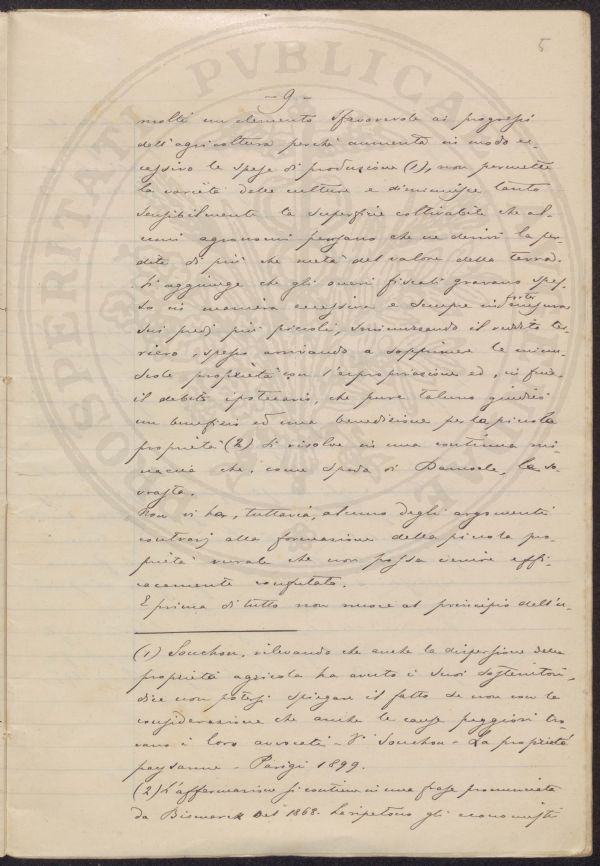 5
- 9 -
molti un elemento sfavorevole ai progressi
dell'agricoltura perchè aumenta in modo ec-
cessivo le spese di produzione (1), non permette
la varietà delle culture e diminuisce tanto
sensibilmente la superficie coltivabile che al-
cuni agronomi pensano che ne derivi la per-
dita di più che metà del valore della terra.
Si aggiunge che gli oneri fiscali gravano spes-
so in maniera eccessiva e sempre in forte misura
sui predi più piccoli, sminuzzando il reddito ter-
riero, spesso arrivando a sopprimere la minu-
scola proprietà con l'espropriazione ed, in fine
il debito ipotecario, che pure taluno giudicò
un beneficio ed una benedizione per la piccola
proprietà (2) si risolve in una continua mi-
naccia che, come spada di Damocle, la so-
vrasta.
Non vi ha, tuttavia, alcuno degli argomenti
contrarj alla formazione della piccola pro-
prietà rurale che non possa venire effi-
cacemente confutato.
E prima di tutto non nuoce al principio dell'u-
(1) Souchon, rilevando che anche la dispersione della
proprietà agricola ha avuto i suoi sostenitori,
dice non potersi spiegare il fatto se non con la
considerazione che anche le cause peggiori tro-
vano i loro avvocati - Vi Souchon - La propriété
paysanne - Parigi 1899.
(2) L'affermazione si contiene in una frase pronunciata
da Bismarck nel 1868. La ripetono gli economisti
PROSPERITATI PVBLICAE